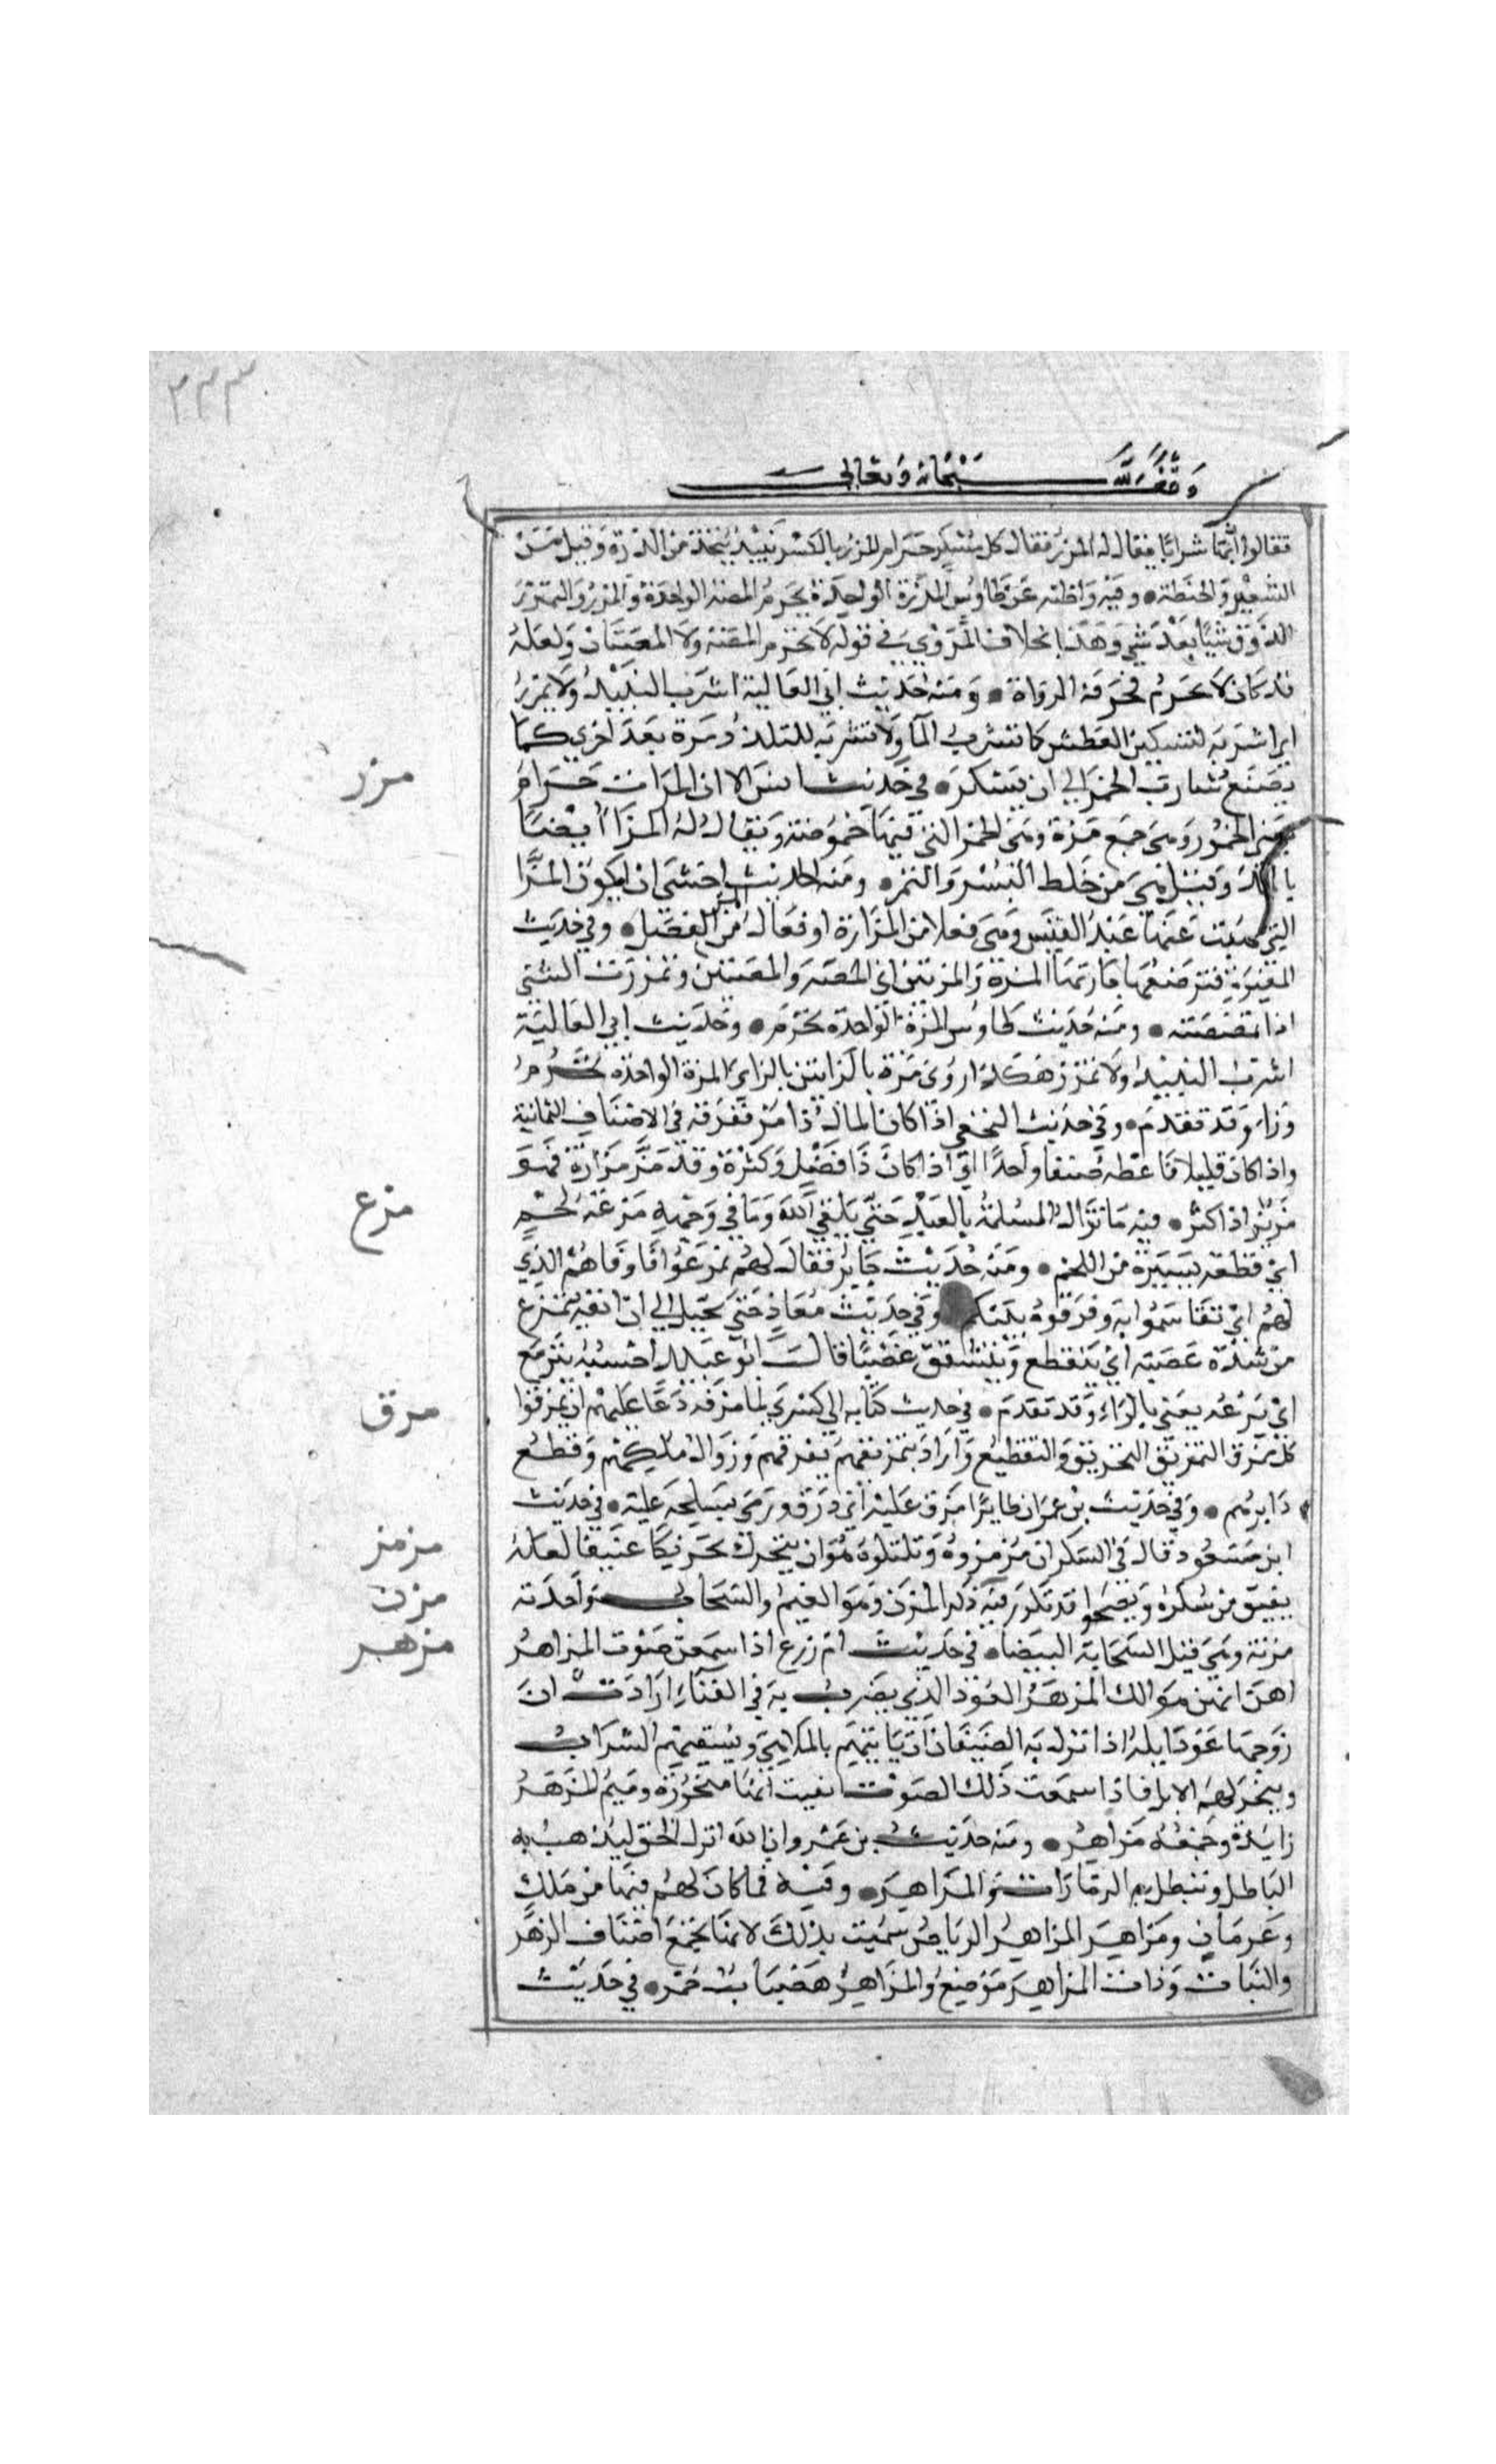 ٢٢٣
وقف لله سبحانه وتعالى
فقالوا انما شرابا يقال له المزر فقال كل مسكر حرام المزر بالكسر نبيذ يتخذ من الذرة وقيل من
الشعير والحنطة ٠ وفيه واظنه عن طاوس المزرة الواحدة تحرم المصة الواحدة والمزر والتمزر
الذوق شيئا بعد شي وهذا بخلاف المروي في قوله لا تحرم المصة ولا المصتان ولعله
قد كان لا تحرم فحرفه الرواة ٠ ومنه حديث ابي العالية اشرب النبيذ ولا تمزر
اي اشربه لتسكين العطش كما تشرب الما ولا تشربه للتلذذ مرة بعد اخرى كما
يصنع شارب الخمر الى ان يسكر ٠ في حديث انس الا ان المزات حرام
مزر
يعني الخمور وهي جمع مزة وهي الخمر التي فيها حموضة ويقال له المزا ايضا
بالمد وقيل هي من خلط البسر والتمر ٠ ومنه الحديث اخشى ان يكون المزا
التي نهيت عنها عبد القيس وهي فعلا من المزازة او فعال من المز الفضل ٠ وفي حديث
المغيرة فترضعها جارتها المزة والمزتين اي المصة والمصتين وتمززت الشي
اذا تمصصته ٠ ومنه حديث طاوس المزة الواحدة تحرم ٠ وحديث ابي العالية
اشرب النبيذ ولا تمزز هكذا روي مرة بالزايين بالزاي المزة الواحدة تحرم
وزاء وقد تقدم ٠ وفي حديث النخعي اذا كان المال ذا مز ففرقه في الاصناف الثمانية
واذا كان قليلا فاعطه صنفا واحدا اي اذا كان ذا فضل وكثرة وقد مز مزازة فهو
مزيز اذا كثر ٠ فيه ما تزال المسلة بالعبد حتى يلقى الله وما في وجهه مزعة لحم
مزع
اي قطعة يسيرة من اللحم ٠ ومنه حديث جابر فقال لهم تمزعوا فاوفاهم الذي
لهم اي تقاسموا به وفرقوه بينكم وفي حديث معاذ حتى تخيل الي ان انفه يتمزع
من شدة غضبه اي يتقطع ويتشقق غضبا قال ابو عبيد احسبه يترمع
اي يرعد يعني بالراء وقد تقدم ٠ في حديث كتابه الى كسرى لما مزقه دعا عليهم ان يمزقوا
مزق
كل ممزق التمزيق التخريق والتقطيع واراد بتمزيقهم تفرقهم وزوال ملكهم وقطع
دابرهم ٠ وفي حديث بن عمر ان طايرا مزق عليه اي ذرق ورمى بسلحه عليه ٠ في حديث
ابن مسعود قال في السكران مزمزوه وتلتلوه هو ان يتحرك تحريكا عنيفا لعله
مزمز
يفيق من سكره ويصحوا قد تكرر فيه ذكر المزن وهو الغيم والسحاب واحدته
مزن
مزنة وهي قيل السحابة البيضا ٠ في حديث ام زرع اذا سمعن صوت المزاهر
مزهر
اهن انهن هوالك المزهر العود الذي يضرب به في الغناء ارادت ان
زوجها عود ابله اذا نزل به الضيفان ان ياتيهم بالملاهي ويسقيهم الشراب
وينحر لهم الابل فاذا سمعت ذلك الصوت ايقنت انها منحورة وميم المزهر
زايدة وجمعه مزاهر ٠ ومنه حديث بن عمرو ان الله انزل الحق ليذهب به
الباطل وتبطل به الزمارات والمزاهر ٠ وفيه فما كان لهم فيها من ملك
وعرمان ومزاهر المزاهر الرياض سميت بذلك لانها تجمع اصناف الزهر
والنبات وذات المزاهر موضع والمزاهر هضبات حمر ٠ في حديث